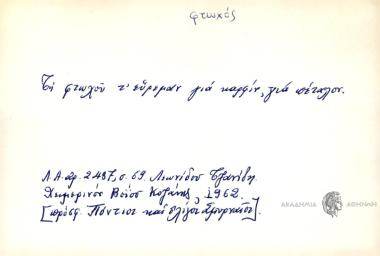 φτωχός
Τή φτωχού τ' εὕρεμαν γιά καρφίν, γιά πέταλον.
Λ.Α. ἀρ. 2487, σ. 69, Λεωνίδου Τζανίδη
Χειμερινός Βοΐου Κοζάνης, 1962.
[πρόσφ. Πόντιοι καί ὀλίγοι Σμυρναῖοι].
ΑΚΑΔΗΜΙΑ ΑΘΗΝΩΝ